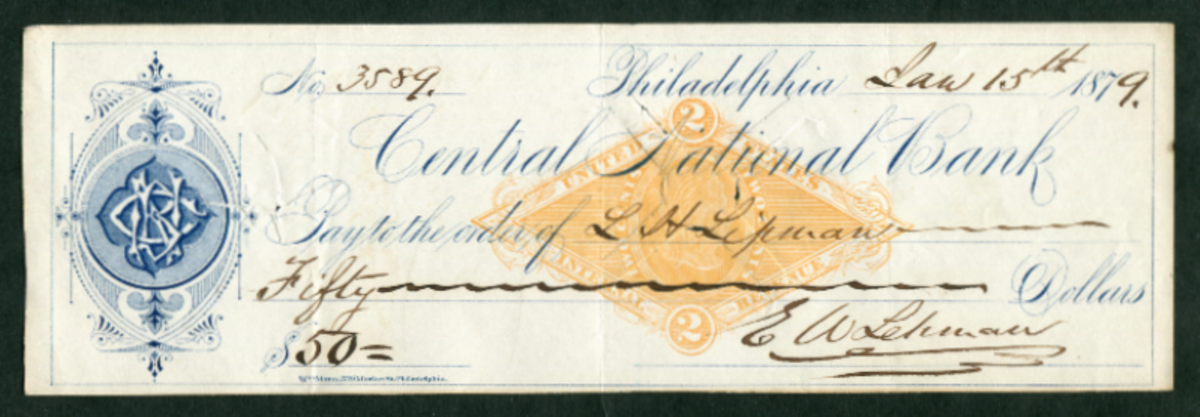 No. 3589. Philadelphia Jan 15th 1879.
2
Central National Bank
UNITED STATES
Pay to the order of L H Lipman
INTERNAL REVENUE
Fifty Dollars
2
$50= E W Lehman
Philadelphia.